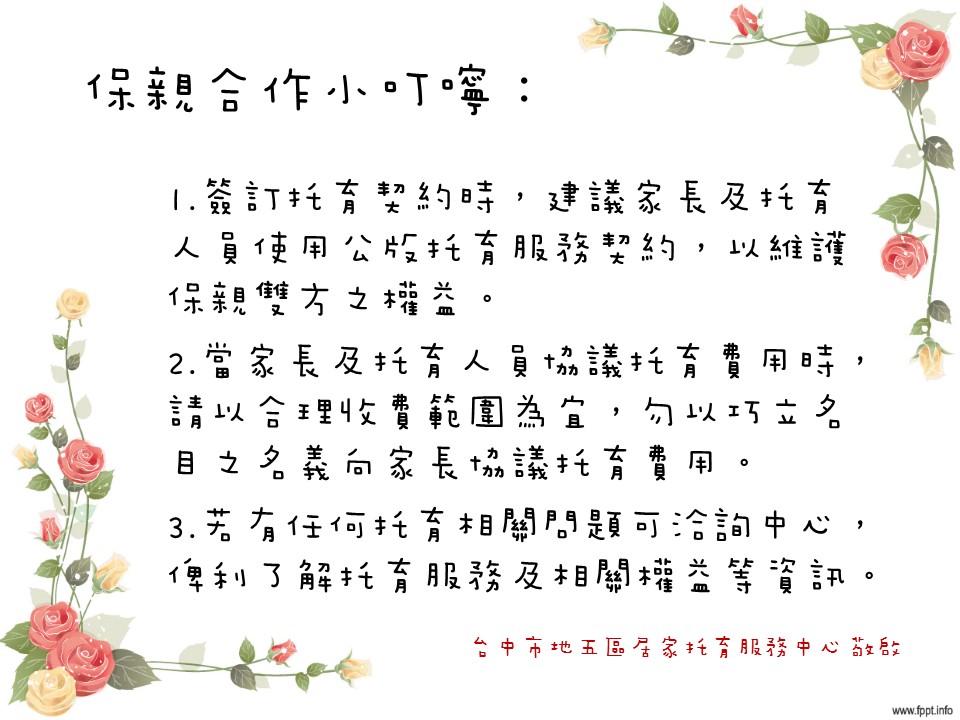 保親合作小叮嚀：
1.簽訂托育契約時，建議家長及托育
人員使用公版托育服務契約，以維護
保親雙方之權益。
2.當家長及托育人員協議托育費用時，
請以合理收費範圍為宜，勿以巧立名
目之名義向家長協議托育費用。
3.若有任何托育相關問題可洽詢中心，
俾利了解托育服務及相關權益等資訊。
台中市地五區居家托育服務中心 敬啟
www.fppt.info